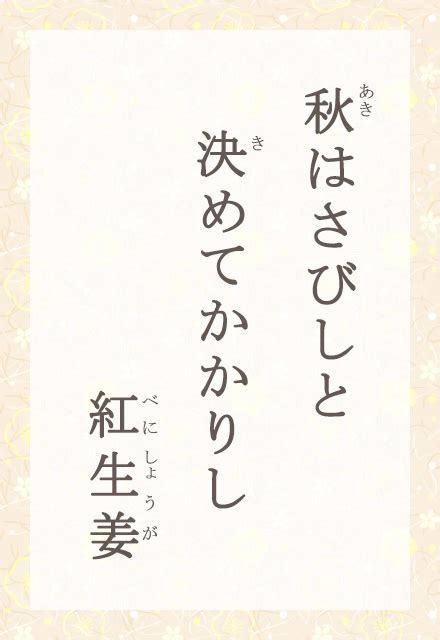 秋はさびしと
あき
決めてかかりし
き
紅生姜
べにしょうが